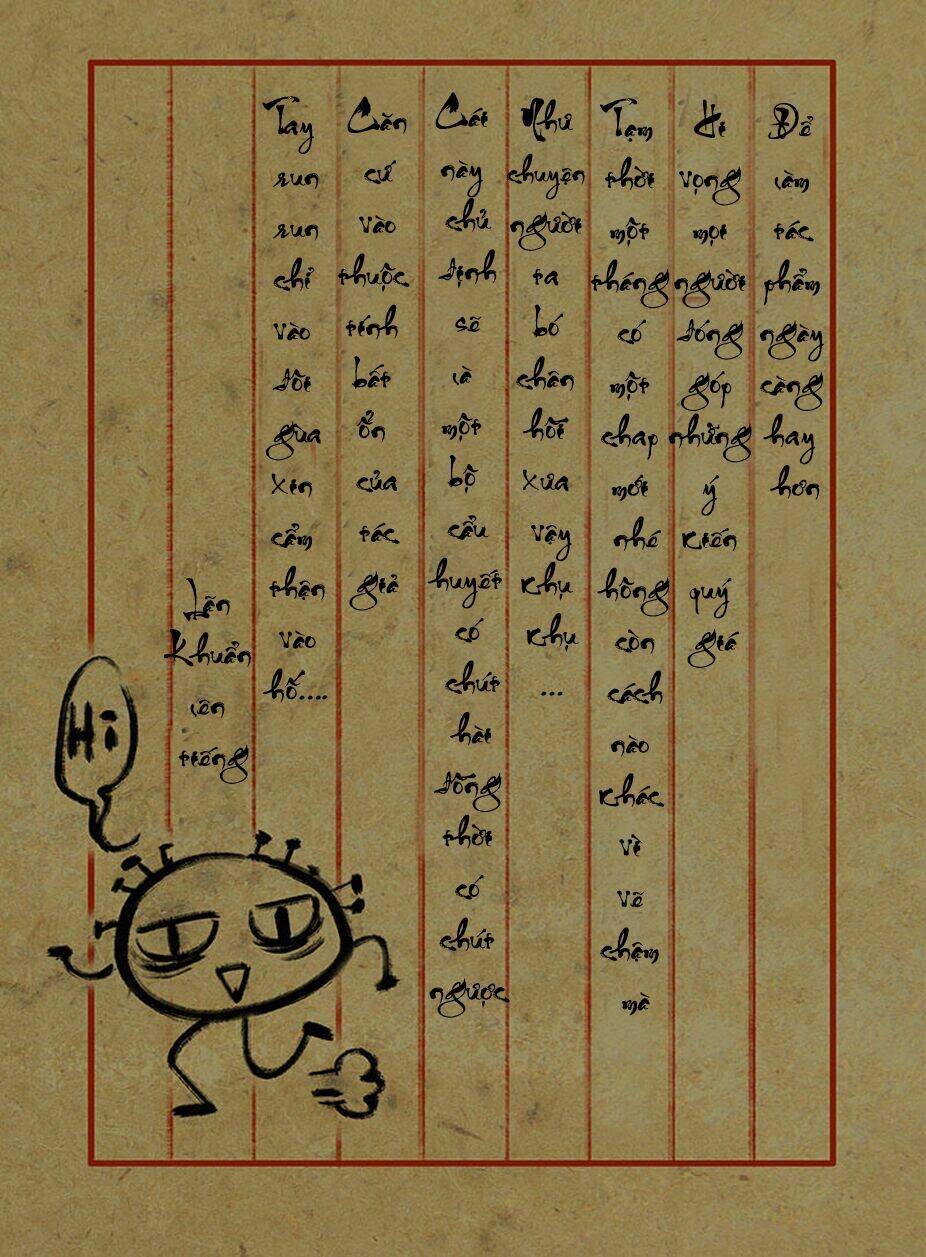 Để làm tác phẩm ngày càng hay hơn
Hi vọng mọi người đóng góp những ý kiến quý giá
Tạm thời một tháng có một chap mới nhé hông còn cách nào khác vì vẽ chậm mà
Như chuyện người ta bó chân hồi xưa vậy khụ khụ ...
Cái này chủ định sẽ là một bộ cẩu huyết có chút hài đồng thời có chút ngược
Căn cứ vào thuộc tính bất ổn của tác giả
Tay run run chỉ vào đôi gùa xin cẩm thận vào hố....
Lãn Khuẩn lên tiếng
Hi